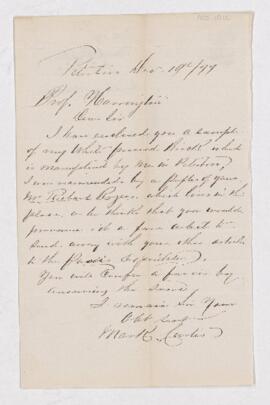 Dec 19th/77
Prof. Harrington
Dear Sir
I have enclosed you a sample
of my White pressed Brick which
is manufactured by me in
I was recommended by a pupil of yours
Mr Richard Rogers which lives in this
place, as he thinks that you would
pronounce it a fair article to
send away with your other articles
to the Paris Exposition
You will confer a favor by
answering the same
I remain Sir Your
Obt Serv
Mark